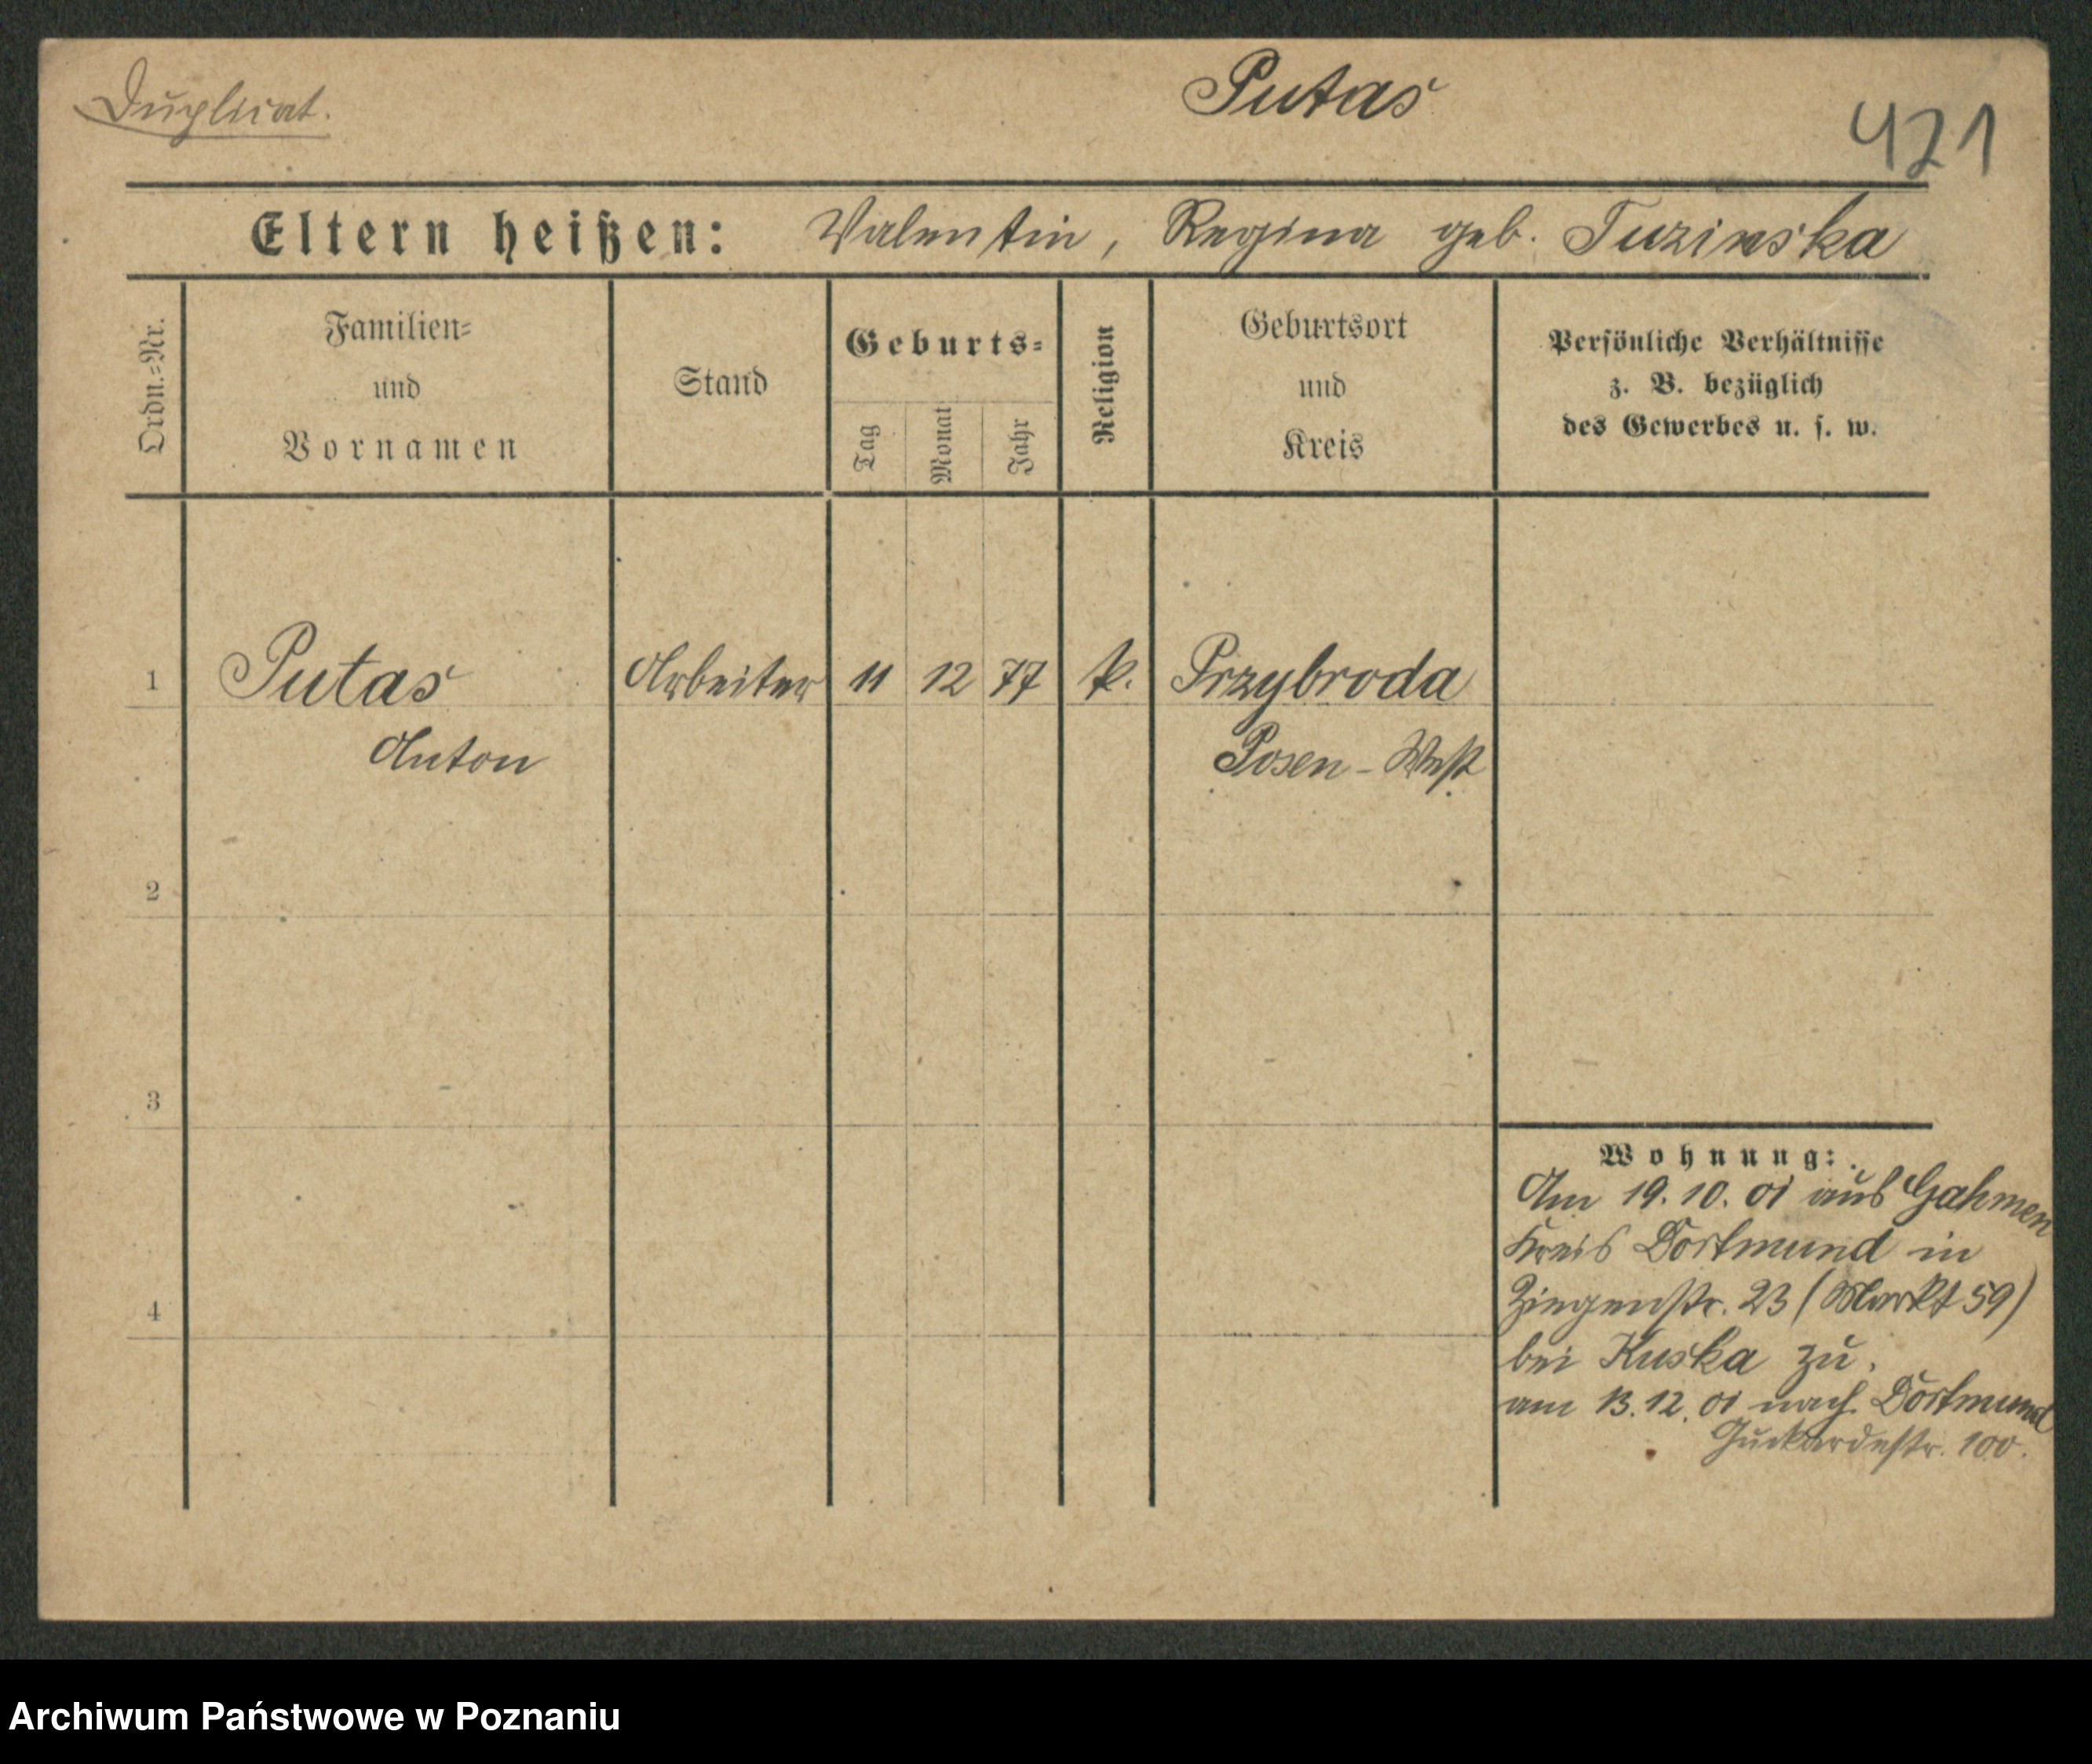 Duplicat.
Putas
421
Eltern heißen: Valentin, Regina geb. Tuzinska
Ordn.-Nr.
Familien-
und
Vornamen
Stand
Geburts-
Tag
Monat
Jahr
Religion
Geburtsort
und
Kreis
Persönliche Verhältnisse
z. B. bezüglich
des Gewerbes u. s. w.
1 Putas Arbeiter 11 12 77 k. Przybroda
Anton Posen-West
2
3
4
Wohnung:
Am 19.10.01 aus Gahmen
Kreis Dortmund in
Ziegenstr. 23 (Markt 59)
bei Kuska zu.
am 13.12.01 nach Dortmund
Huckardestr. 100.
Archiwum Państwowe w Poznaniu